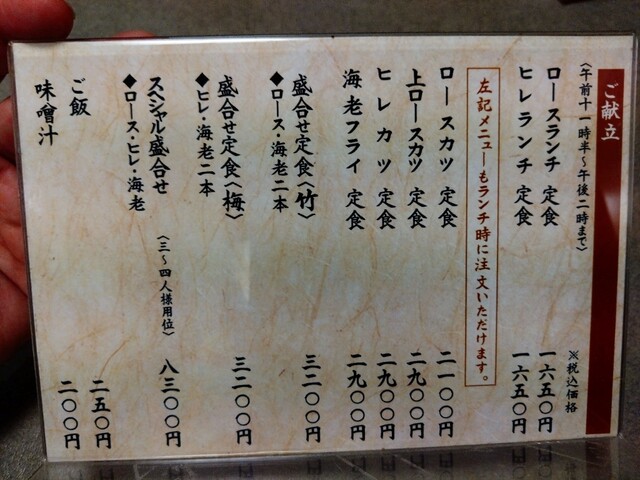 ご献立
〈午前十一時半〜午後二時まで〉
※税込価格
ロースランチ 定食 一六五〇円
ヒレランチ 定食 一六五〇円
左記メニューもランチ時に注文いただけます。
ロースカツ 定食 二一〇〇円
上ロースカツ 定食 二九〇〇円
ヒレカツ 定食 二九〇〇円
海老フライ 定食 二九〇〇円
盛合せ定食〈竹〉 三二〇〇円
◆ロース・海老二本
盛合せ定食〈梅〉 三二〇〇円
◆ヒレ・海老二本
スシャル盛合せ 〈三〜四人様用位〉 八三〇〇円
◆ロース・ヒレ・海老
ご飯 二五〇円
味噌汁 二〇〇円